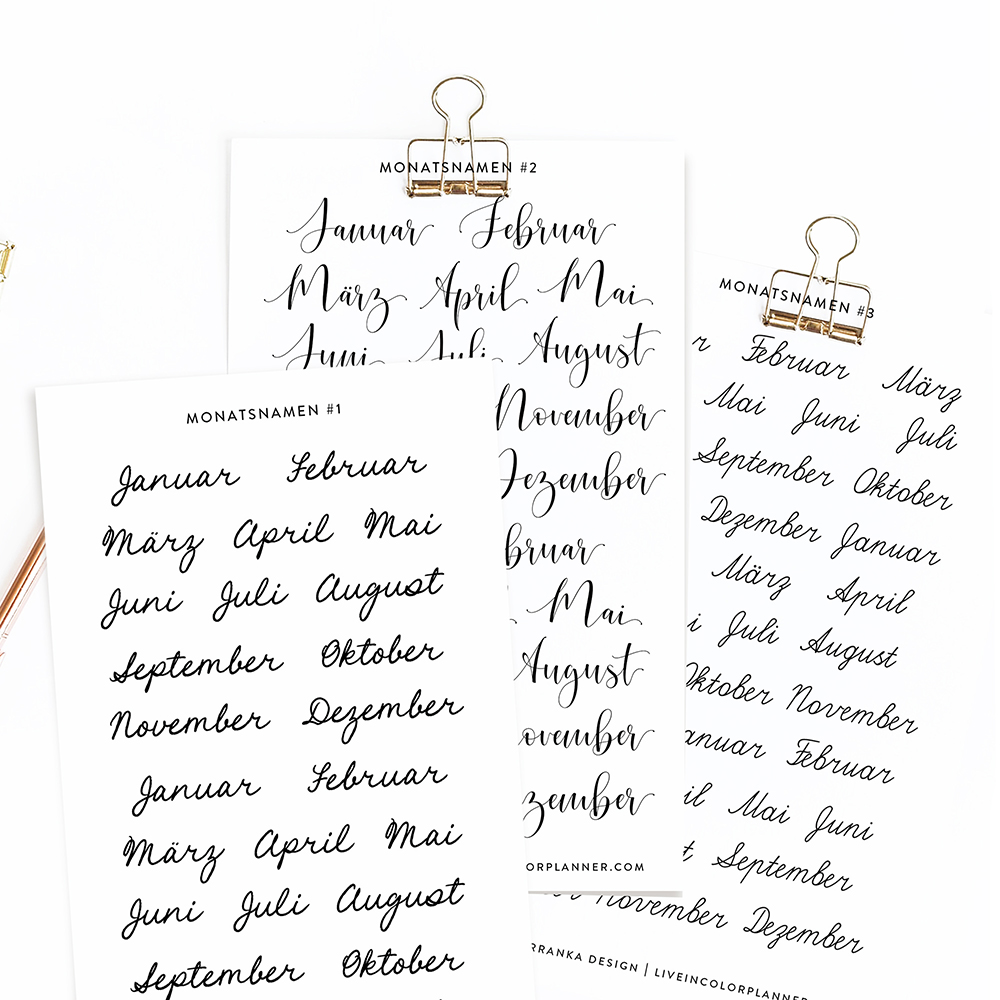 MONATSNAMEN #2
Januar Februar
März April Mai
Juni Juli August
November
Dezember
Mai
August
MONATSNAMEN #1
Januar Februar
März April Mai
Juni Juli August
September Oktober
November Dezember
Januar Februar
März April Mai
Juni Juli August
September Oktober
MONATSNAMEN #3
Februar März
Mai Juni Juli
September Oktober
Dezember Januar
März April
Juli August
Oktober November
Februar
Mai Juni
September
November Dezember
DESIGN | LIVEINCOLORPLANNER